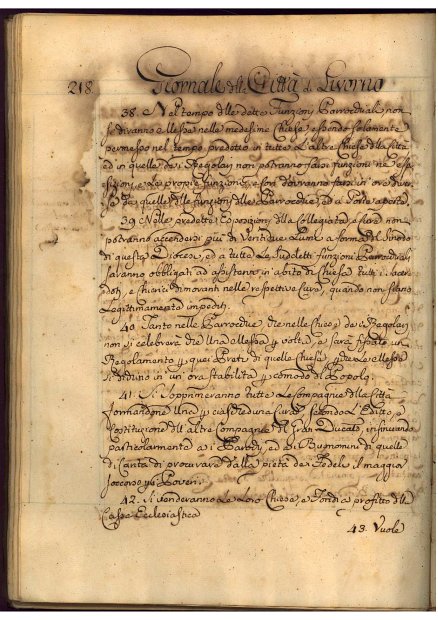 218 Giornale della Città di Livorno
38. Nel tempo delle dette Funzioni Parrocchiali non
si diranno Messe nelle medesime Chiese, essendo solamente
permesso nel tempo predetto in tutte l'altre Chiese della Città
ed in quelle dei Regolari non potranno farsi funzioni nè espo
sizioni, e le proprie funzioni dovranno farsi in ora diver
sa da quelle delle funzioni delle Parrocchie, ed a Porte aperte
39. Nelle predette Esposizioni della Collegiata e Cure non
potranno accendersi più di Ventidue Lumi a forma del Sinodo
di questa Diocesi, ed a tutte le suddette funzioni Parrocchiali
saranno obbligati ad assistere in abito di Chiesa tutti i Sacer
doti, e chierici dimoranti nelle respettive Cure, quando non siano
Legittimamente impediti.
40. Tanto nelle Parrocchie, che nelle Chiese dei Regolari
non si celebrerà che Una Messa p volta, e sarà fissato un
Regolamento p quei Preti di quelle Chiese, p che le Messe
si dichino in un'ora stabilita p comodo del Popolo
41. Si sopprimeranno tutte le Compagnie della Città
formandone Una p ciascheduna Cura secondo l'Editto, e
Costituzione dell'altre Compagnie del Gran Ducato, insinuando
particolarmente a i Parochi, ed ai Buonomini di quelle
di Carità di procurare dalla pietà de Fedeli il maggior
soccorso p i Poveri.
42. Si venderanno le loro Chiese, e Fondi a profitto della
Cassa Ecclesiastica
43. Vuole